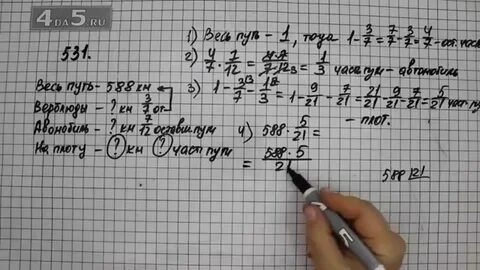 4DA5.RU
531.
Весь путь - 588 км
Верблюды - ? км 3/7 от
Автомобиль - ? км 7/12 оставш пути
На плоту - ? км ? часть пути
1) Весь путь - 1, тогда 1 - 3/7 = 7/7 - 3/7 = 4/7 - ост. часть
2) 4/7 · 7/12 = 4·7/7·12 3 = 1/3 часть пути - автомобиль
3) 1 - 3/7 - 1/3 = 1 - 9/21 - 7/21 = 21/21 - 9/21 - 7/21 = 5/21 часть пути
- плот.
4) 588 · 5/21 =
= 588 · 5/21
588 21